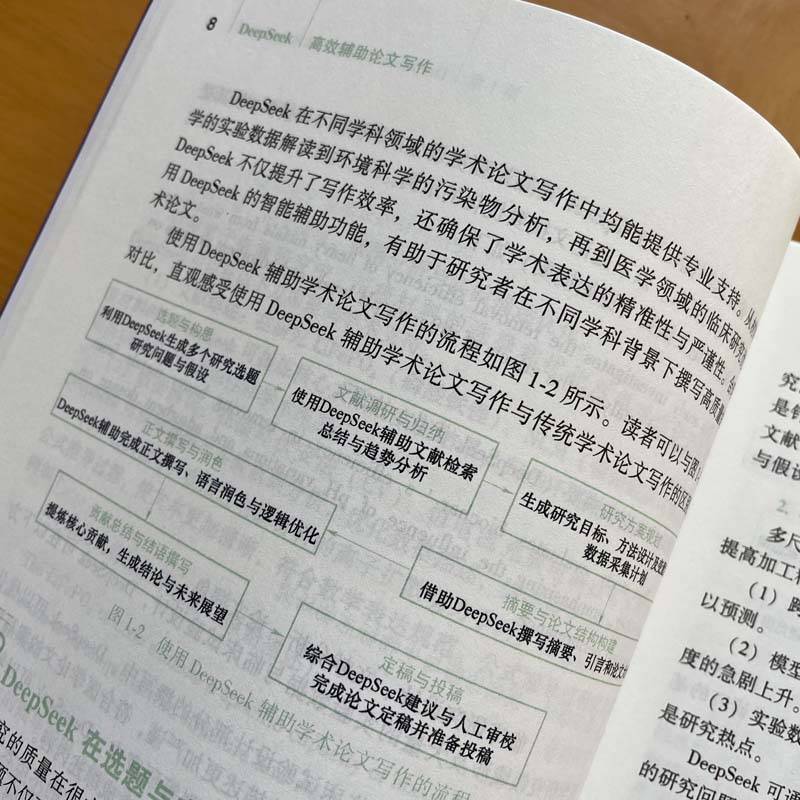 8 DeepSeek 高效辅助论文写作
DeepSeek 在不同学科领域的学术论文写作中均能提供专业支持。从
学的实验数据解读到环境科学的污染物分析，再到医学领域的临床研究
DeepSeek 不仅提升了写作效率，还确保了学术表达的精准性与严谨性。
用 DeepSeek 的智能辅助功能，有助于研究者在不同学科背景下撰写高质量
术论文。
使用 DeepSeek 辅助学术论文写作的流程如图 1-2 所示。读者可以与图
对比，直观感受使用 DeepSeek 辅助学术论文写作与传统学术论文写作的区
选题与构思
利用DeepSeek生成多个研究选题
研究问题与假设
文献调研与归纳
使用DeepSeek辅助文献检索
总结与趋势分析
研究方案规划
生成研究目标、方法设计及
数据采集计划
正文撰写与润色
DeepSeek辅助完成正文撰写、语言润色与逻辑优化
摘要与论文结构构建
借助DeepSeek撰写摘要、引言和论文
贡献总结与结语撰写
提炼核心贡献，生成结论与未来展望
定稿与投稿
综合DeepSeek建议与人工审校
完成论文定稿并准备投稿
图 1-2 使用 DeepSeek 辅助学术论文写作的流程
DeepSeek 在选题与
究的质量在很
究
是
文献
与假设
2.
多尺
提高加工
（1）跨
以预测。
（2）模型
度的急剧上升。
（3）实验数
是研究热点。
DeepSeek 可通
的研究问题